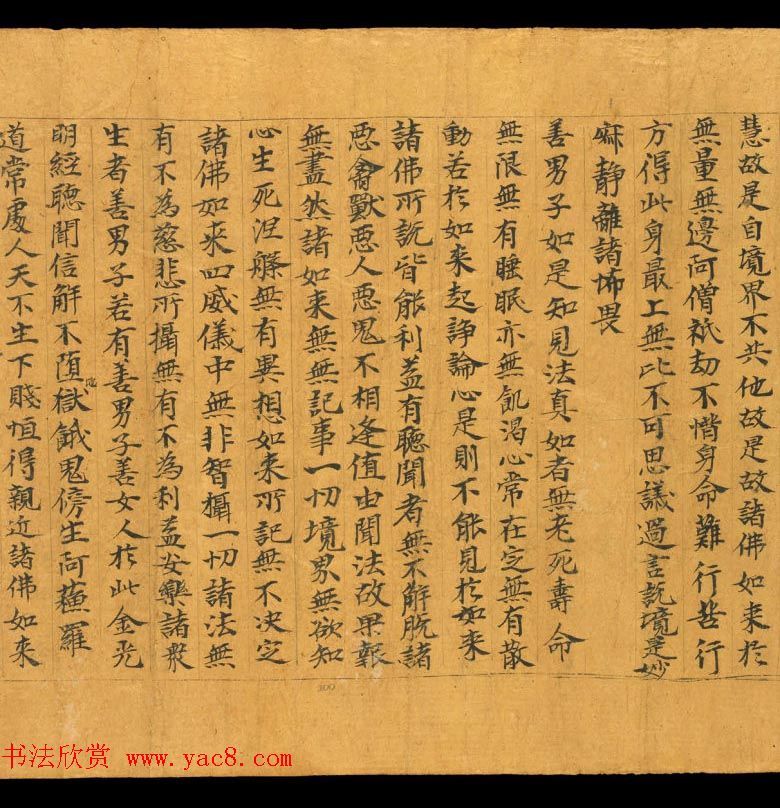 慧故是自境界不共他故是故諸佛如来於
無量無邊阿僧祇劫不惜身命難行苦行
方得此身最上無比不可思議過言說境是妙
寂静離諸怖畏
善男子如是知見法真如者無老死壽命
無限無有睡眠亦無飢渴心常在定無有散
動若於如来起諍論心是則不能見於如来
諸佛所說皆能利益有聽聞者無不解脫諸
惡禽獸惡人惡鬼不相逢值由聞法故果報
無盡然諸如来無無記事一切境界無欲知
心生死涅槃無有異想如来所記無不决定
諸佛如来四威儀中無非智攝一切諸法無
有不為慈悲所攝無有不為利益安樂諸衆
生者善男子若有善男子善女人於此金光
明經聽聞信解不墮地獄餓鬼傍生阿蘓羅
道常處人天不生下賤恒得親近諸佛如来
100
书法欣赏 www.yac8.com